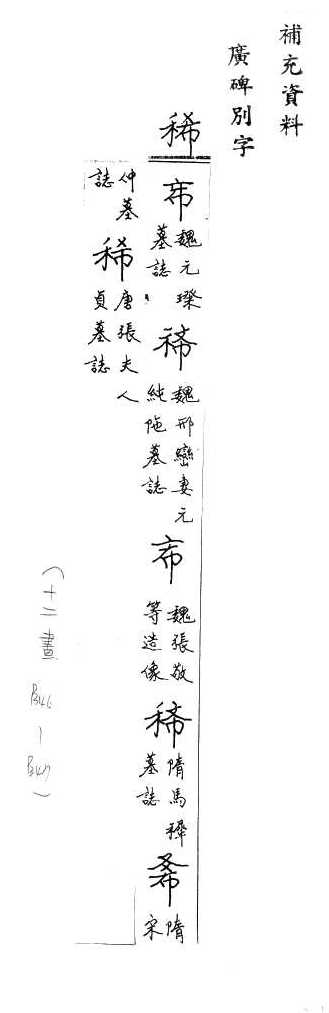 補充資料
廣碑別字
稀
魏元璨
墓誌
魏邢巒妻元
純陁墓誌
魏張敬
等造像
稀
隋馬穉
墓誌
隋
宋
仲墓
誌
稀
唐張夫人
貞墓誌
(十二畫